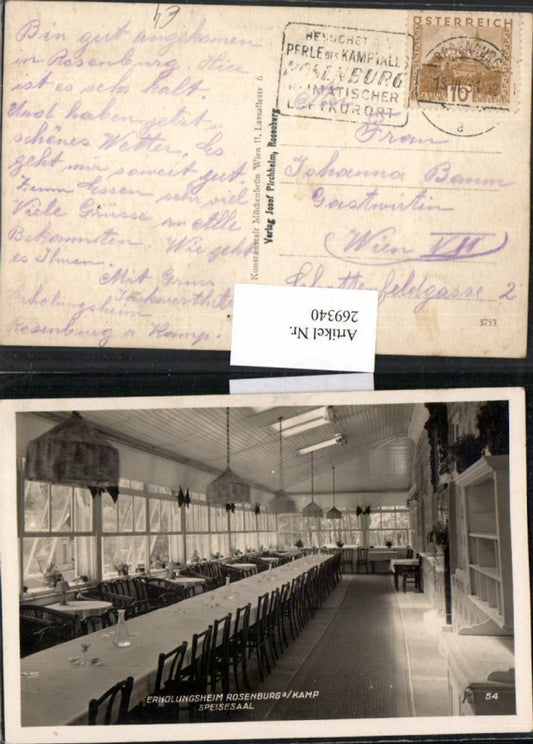 Bin gut angekommen
in Rosenburg. Hier
ist es sehr kalt.
Und haben jetzt
schönes Wetter. Es
geht mir soweit gut,
zum Essen sehr viel
Viele Grüsse an Alle
Bekannten. Wie geht
es Ihnen.
Mit Gruss
Erholungsheim
Rosenburg a Kamp.
Konstanstalt Müchenbrün Wien II. Lassallestr 6
Verlag Josef Pirchheim, Rosenburg
BESUCHET
PERLE DES KAMPTALES
ROSENBURG
KLIMATISCHER
LUFTKURORT
ÖSTERREICH
10 GROSCHEN
ROSENBURG
a
Frau
Johanna Baum
Gastwirtin
Wien VII
Schottenfeldgasse 2
5753
Artikel Nr.
269340
ERHOLUNGSHEIM ROSENBURG a/KAMP
SPEISESAAL
54